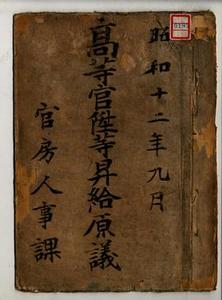 昭和十二年九月
高等官陞等昇給原議
官房人事課